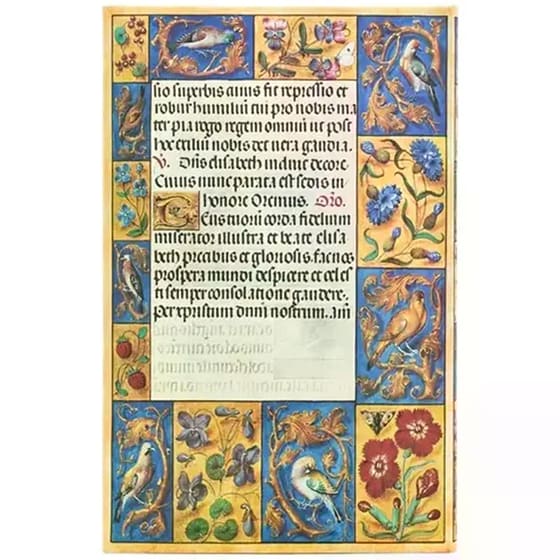 sio superbis fit repressio et
robur humiliu cui pro nobis ma
ter pia rogo regem omniu ut post
hoc exiliu nobis det uera gaudia.
V. elisabeth induit decore
Cuius nunc parata est sedis in
honore Oremus. Oro.
Deus tuoru corda fidelium
miserator illustra et beate elisa
beth precibus et gloriosis. fac nos
prospera mundi despicere et celes
ti semper consolatione gaudere.
per xpristum dnm nostrum. am